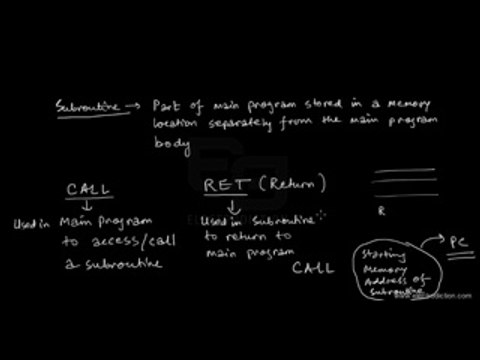 Subroutine → Part of main program stored in a memory
location separately from the main program
body
CALL
↓
Used in Main Program
to access/call
a subroutine
RET (Return)
↓
Used in Subroutine
to return to
main program
CALL
R
Starting
Memory
Address of
Subroutine
PC